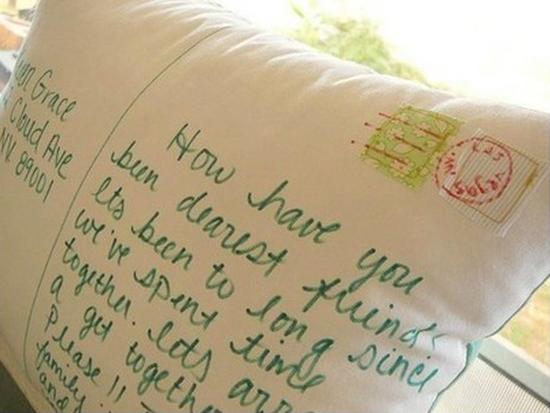 Grace
Cloud Ave
NV. 89001
LAS VEGAS NV.
How have you
been dearest friend
Its been to long since
we've spent time
together. lets arr
a get togethe
Please!!
family
and